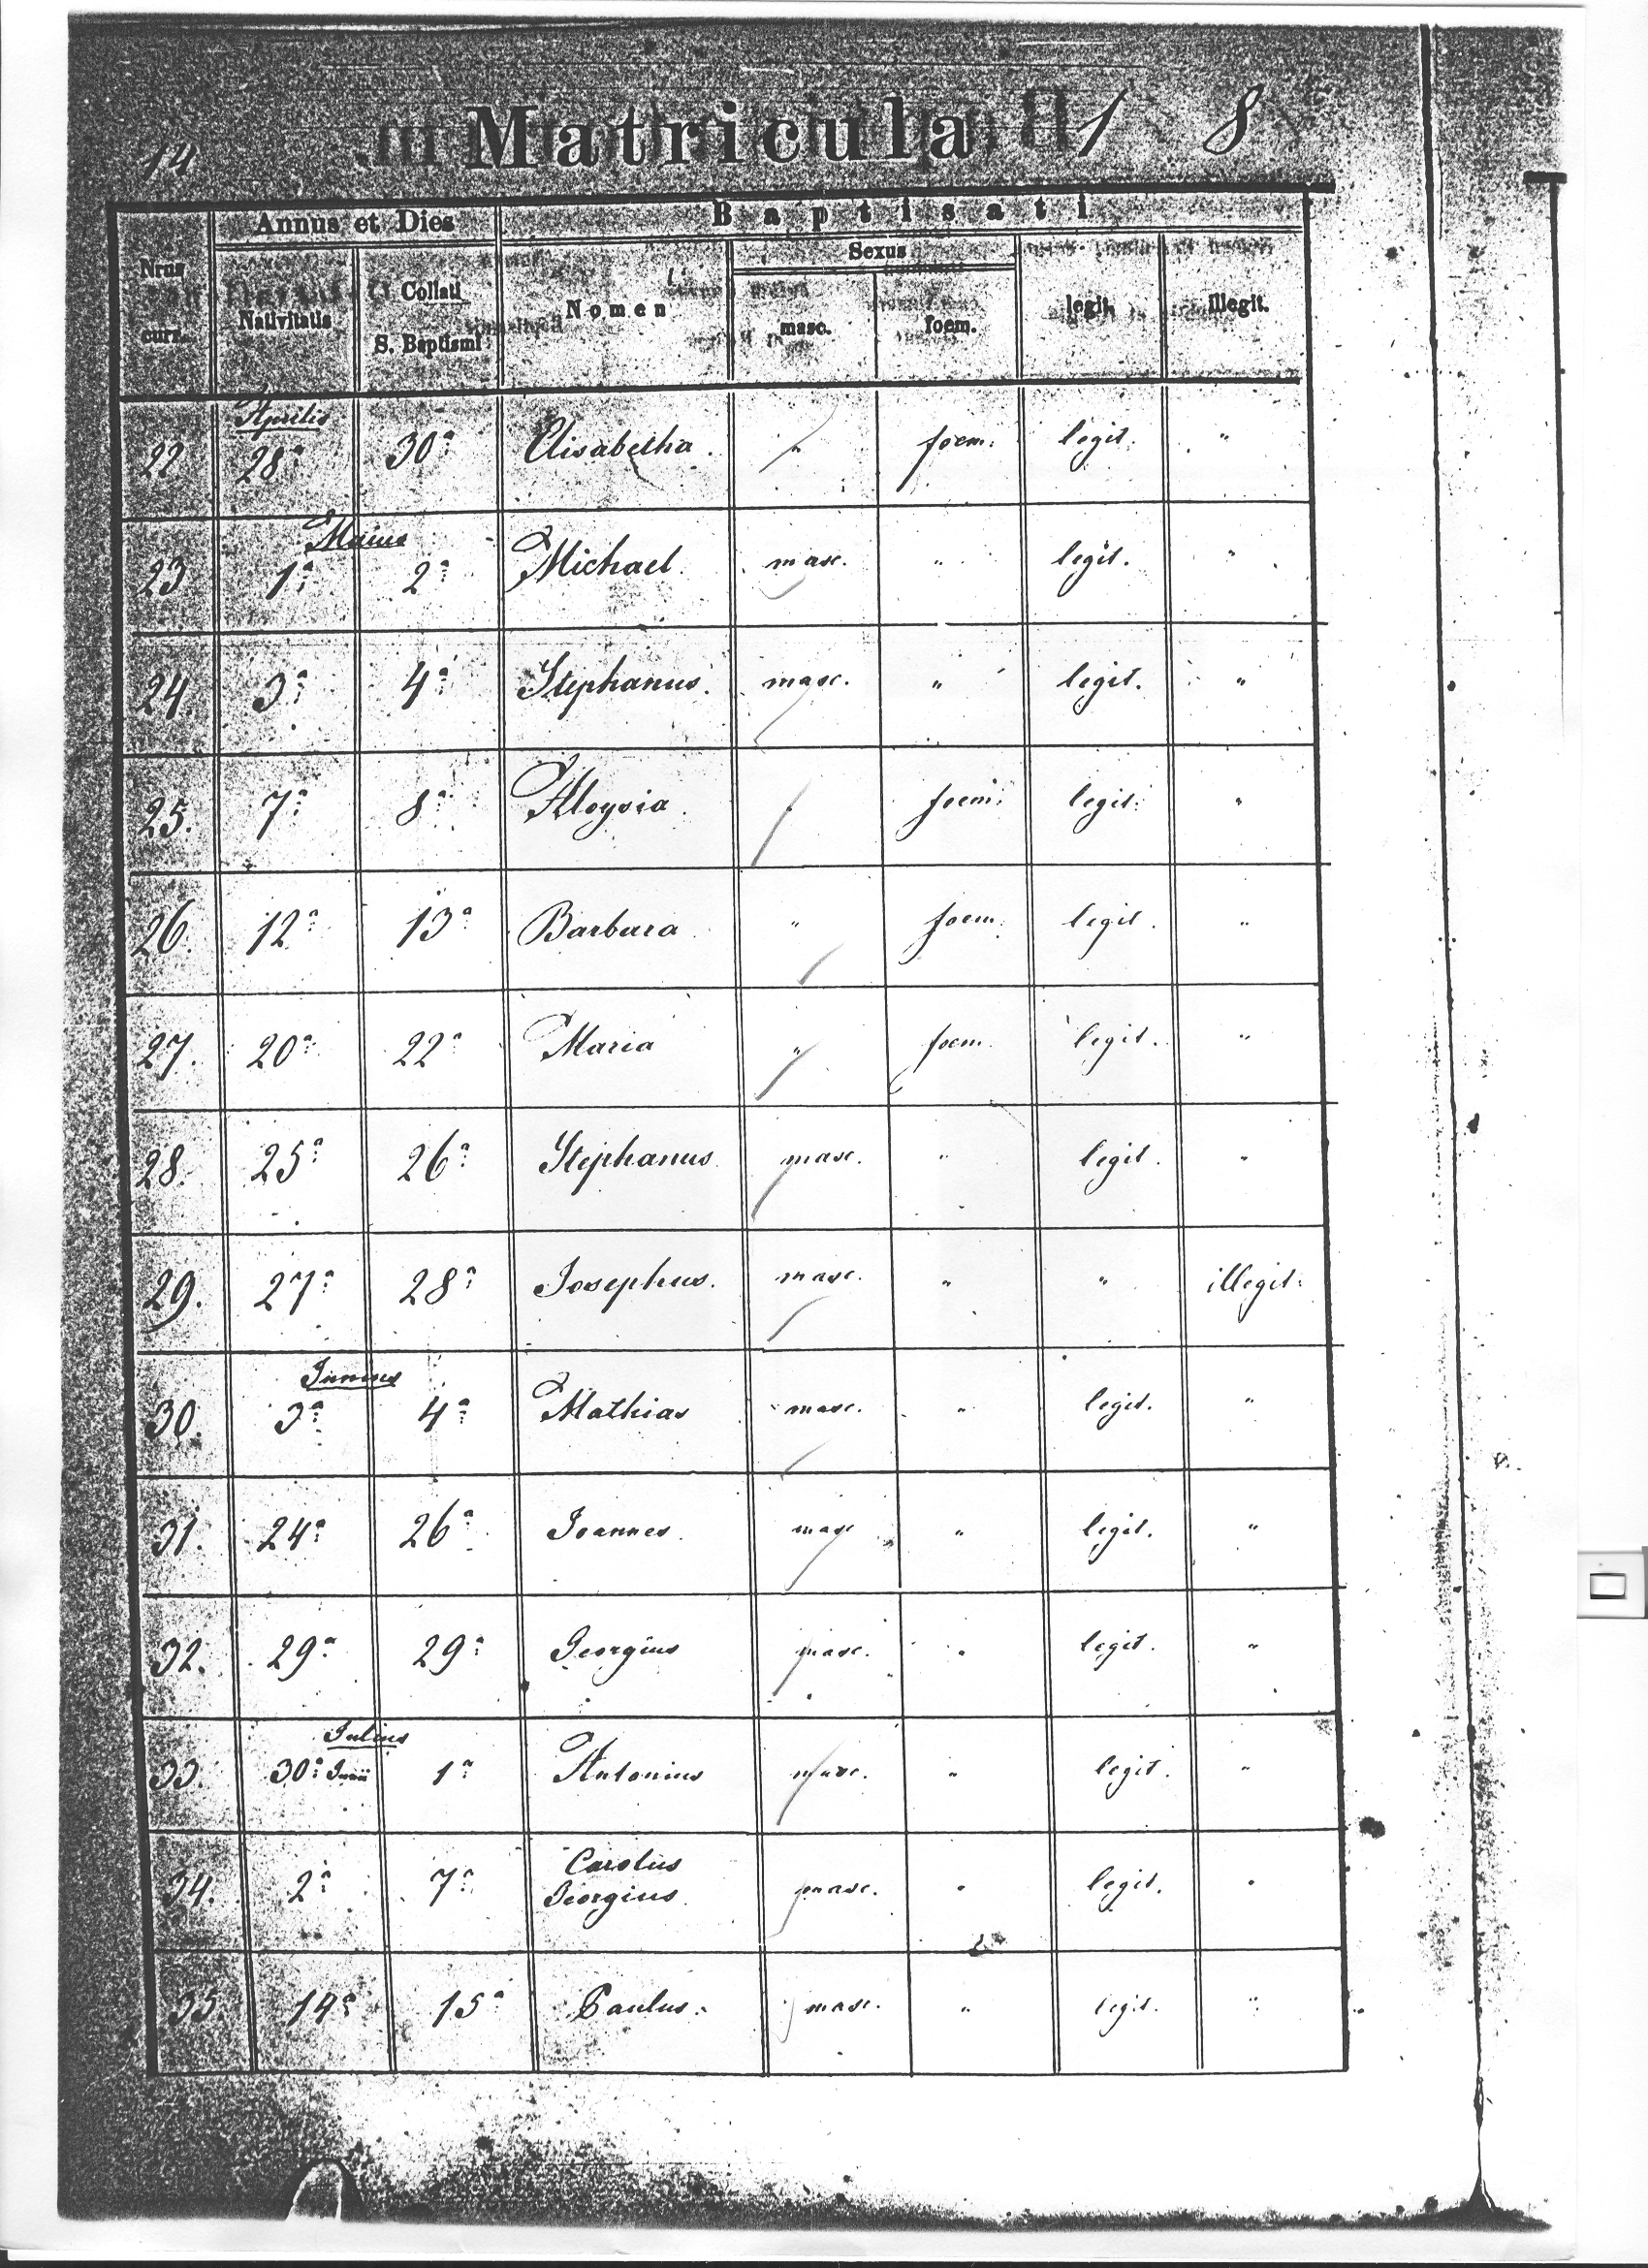 14 Matricula 1 8
Annus et Dies Baptisati
Nrus curr. Nativitatis Collati S. Baptismi Nomen Sexus legit. illegit.
masc. foem.
Aprilis
22 28a 30a Elisabetha. " foem. legit. "
Maius
23 1a 2a Michael. masc. " legit. "
24 3a 4a Stephanus. masc. " legit. "
25. 7a 8a Aloysia. foem. legit. "
26. 12a 13a Barbara " foem. legit. "
27. 20a 22a Maria " foem. legit. "
28. 25a 26a Stephanus. masc. " legit. "
29. 27a 28a Josephus. masc. " " illegit.
Junius
30. 3a 4a Mathias masc. " legit. "
31. 24a 26a Joannes. masc " legit. "
32. 29a 29a Georgius masc. " legit. "
Julius
33. 30a Junii 1a Antonius masc. " legit. "
34. 2a 7a Carolus
Georgius. masc. " legit. "
35. 14a 15a Paulus. masc. " legit. "